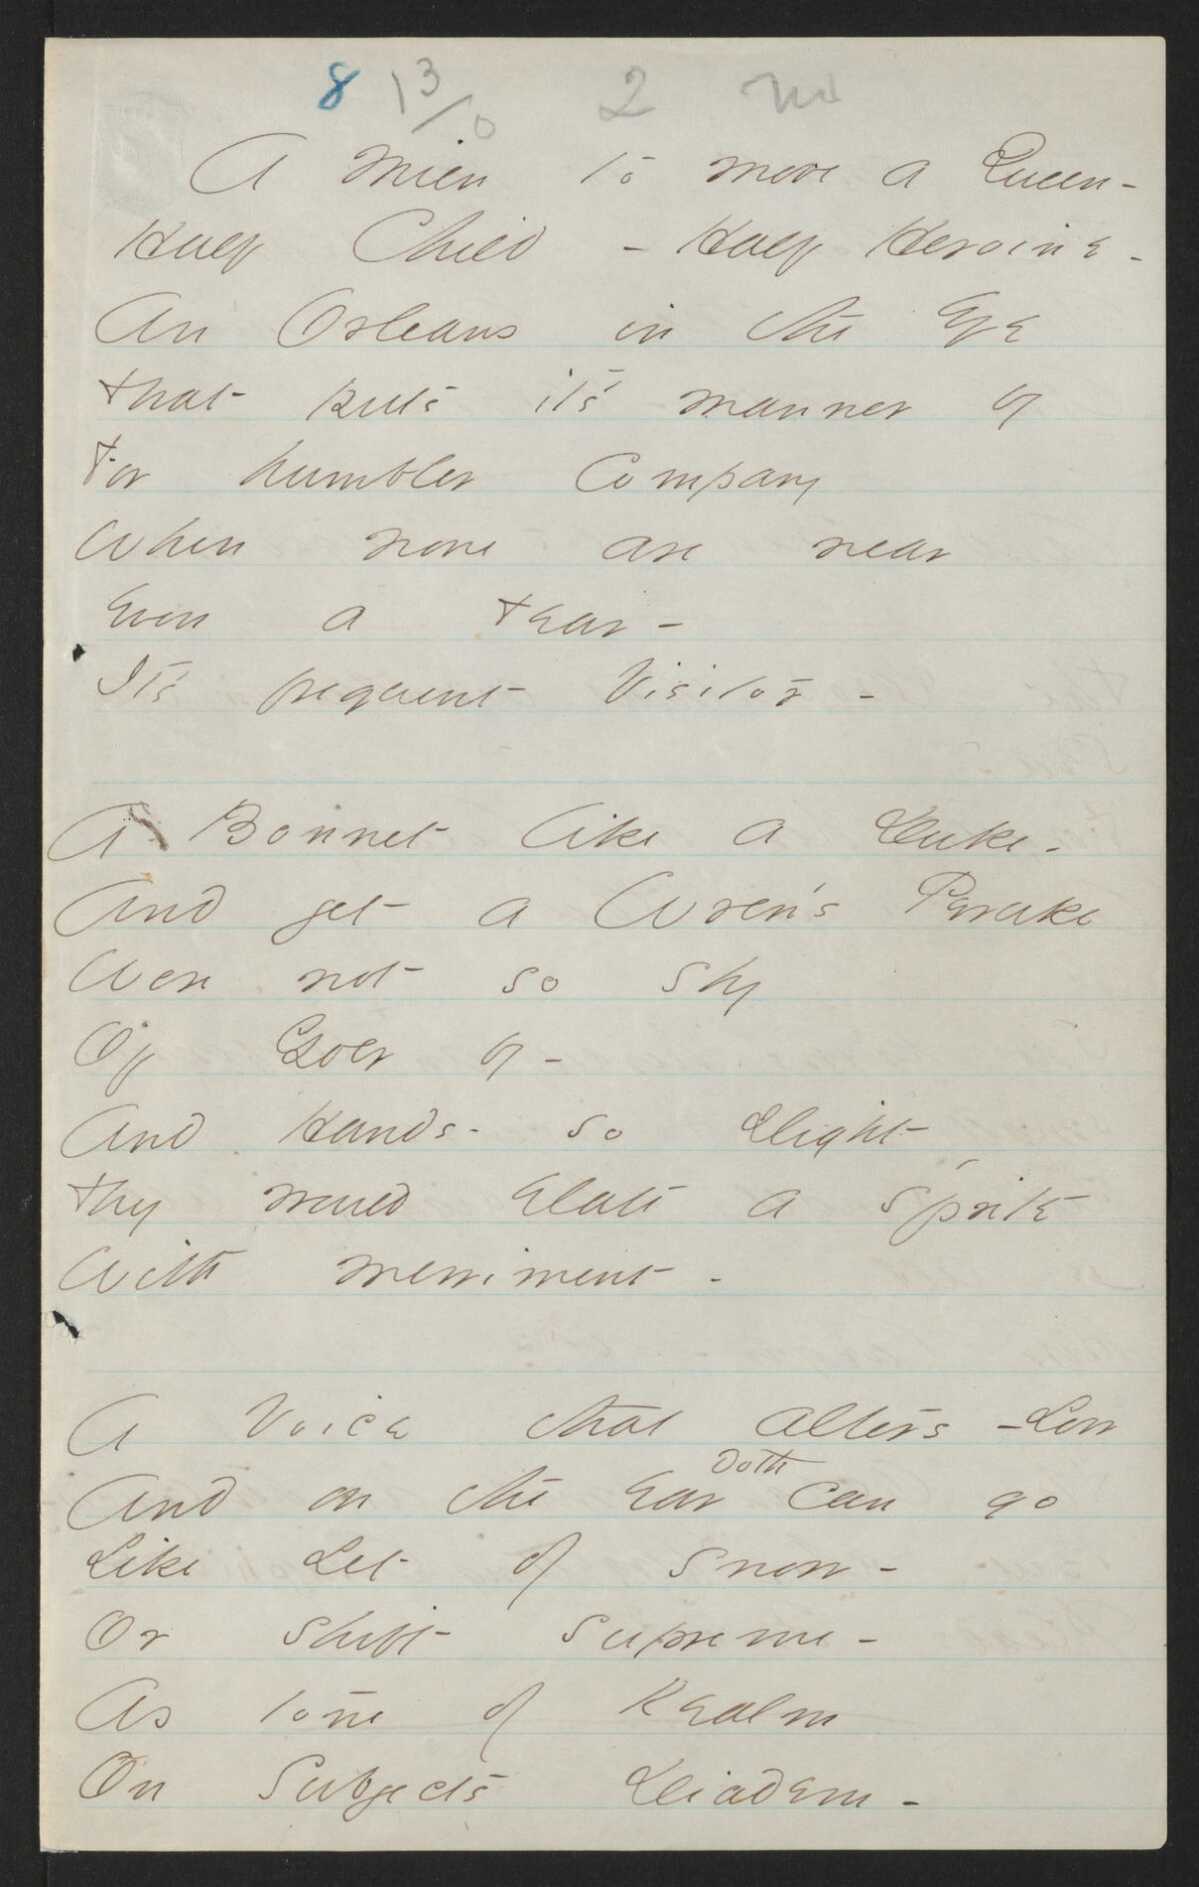 8 13/0 2
A mien to move a Queen -
Half Child - Half Heroine -
An Orleans in the Eye
That puts its manner by
For humbler Company
When none are near
Even a Tear -
It's frequent Visitor -
A Bonnet like a Duke -
And yet a Wren's Peruke
Were not so shy
Of Goer by -
And Hands - so slight,
They would Elate a Sprite
With merriment -
A Voice that alters - Low
Doth
And on the Ear can go
Like Let of Snow -
Or shift supreme -
As tone of Realm
On Subjects Diadem -